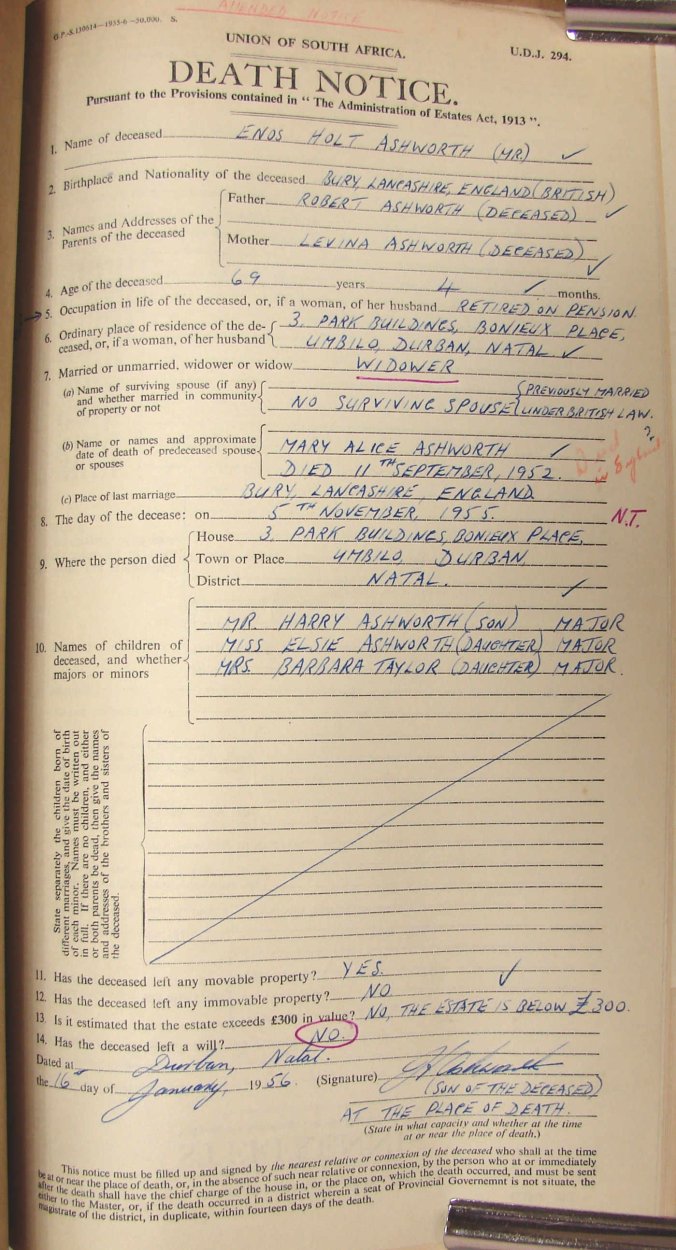 AMENDED NOTICE
G.P.-S.130614—1955-6—50,000. S.
UNION OF SOUTH AFRICA.
U.D.J. 294.
DEATH NOTICE.
Pursuant to the Provisions contained in “ The Administration of Estates Act, 1913 ”.
1. Name of deceased ENOS HOLT ASHWORTH (MR) ✓
2. Birthplace and Nationality of the deceased BURY, LANCASHIRE, ENGLAND (BRITISH)
3. Names and Addresses of the Parents of the deceased
Father ROBERT ASHWORTH (DECEASED) ✓
Mother LEVINA ASHWORTH (DECEASED) ✓
4. Age of the deceased 69 years 4 ✓ months.
5. Occupation in life of the deceased, or, if a woman, of her husband RETIRED ON PENSION.
6. Ordinary place of residence of the de- 3. PARK BUILDINGS, BONIEUX PLACE,
ceased, or, if a woman, of her husband UMBILO, DURBAN, NATAL ✓
7. Married or unmarried, widower or widow WIDOWER
(a) Name of surviving spouse (if any)
and whether married in community
of property or not
NO SURVIVING SPOUSE
PREVIOUSLY MARRIED
UNDER BRITISH LAW.
(b) Name or names and approximate
date of death of predeceased spouse
or spouses
MARY ALICE ASHWORTH ✓
DIED 11TH SEPTEMBER, 1952.
Died in England ?
(c) Place of last marriage BURY, LANCASHIRE, ENGLAND
8. The day of the decease: on 5TH NOVEMBER, 1955. N.T.
9. Where the person died
House 3. PARK BUILDINGS, BONIEUX PLACE,
Town or Place UMBILO, DURBAN,
District NATAL. ✓
10. Names of children of
deceased, and whether
majors or minors
MR. HARRY ASHWORTH (SON) MAJOR
MISS ELSIE ASHWORTH (DAUGHTER) MAJOR
MRS. BARBARA TAYLOR (DAUGHTER) MAJOR.
State separately the children born of
different marriages, and give the date of birth
of each minor. Names must be written out
in full. If there are no children, and either
or both parents be dead, then give the names
and addresses of the brothers and sisters of
the deceased.
11. Has the deceased left any movable property? YES. ✓
12. Has the deceased left any immovable property? NO
13. Is it estimated that the estate exceeds £300 in value? NO, THE ESTATE IS BELOW £300.
14. Has the deceased left a will? NO.
Dated at Durban, Natal.
the 16 day of January, 1956. (Signature)
(SON OF THE DECEASED)
AT THE PLACE OF DEATH.
(State in what capacity and whether at the time
at or near the place of death.)
This notice must be filled up and signed by the nearest relative or connexion of the deceased who shall at the time
be at or near the place of death, or, in the absence of such near relative or connexion, by the person who at or immediately
after the death shall have the chief charge of the house in, or the place on, which the death occurred, and must be sent
either to the Master, or, if the death occurred in a district wherein a seat of Provincial Governemnt is not situate, the
magistrate of the district, in duplicate, within fourteen days of the death.